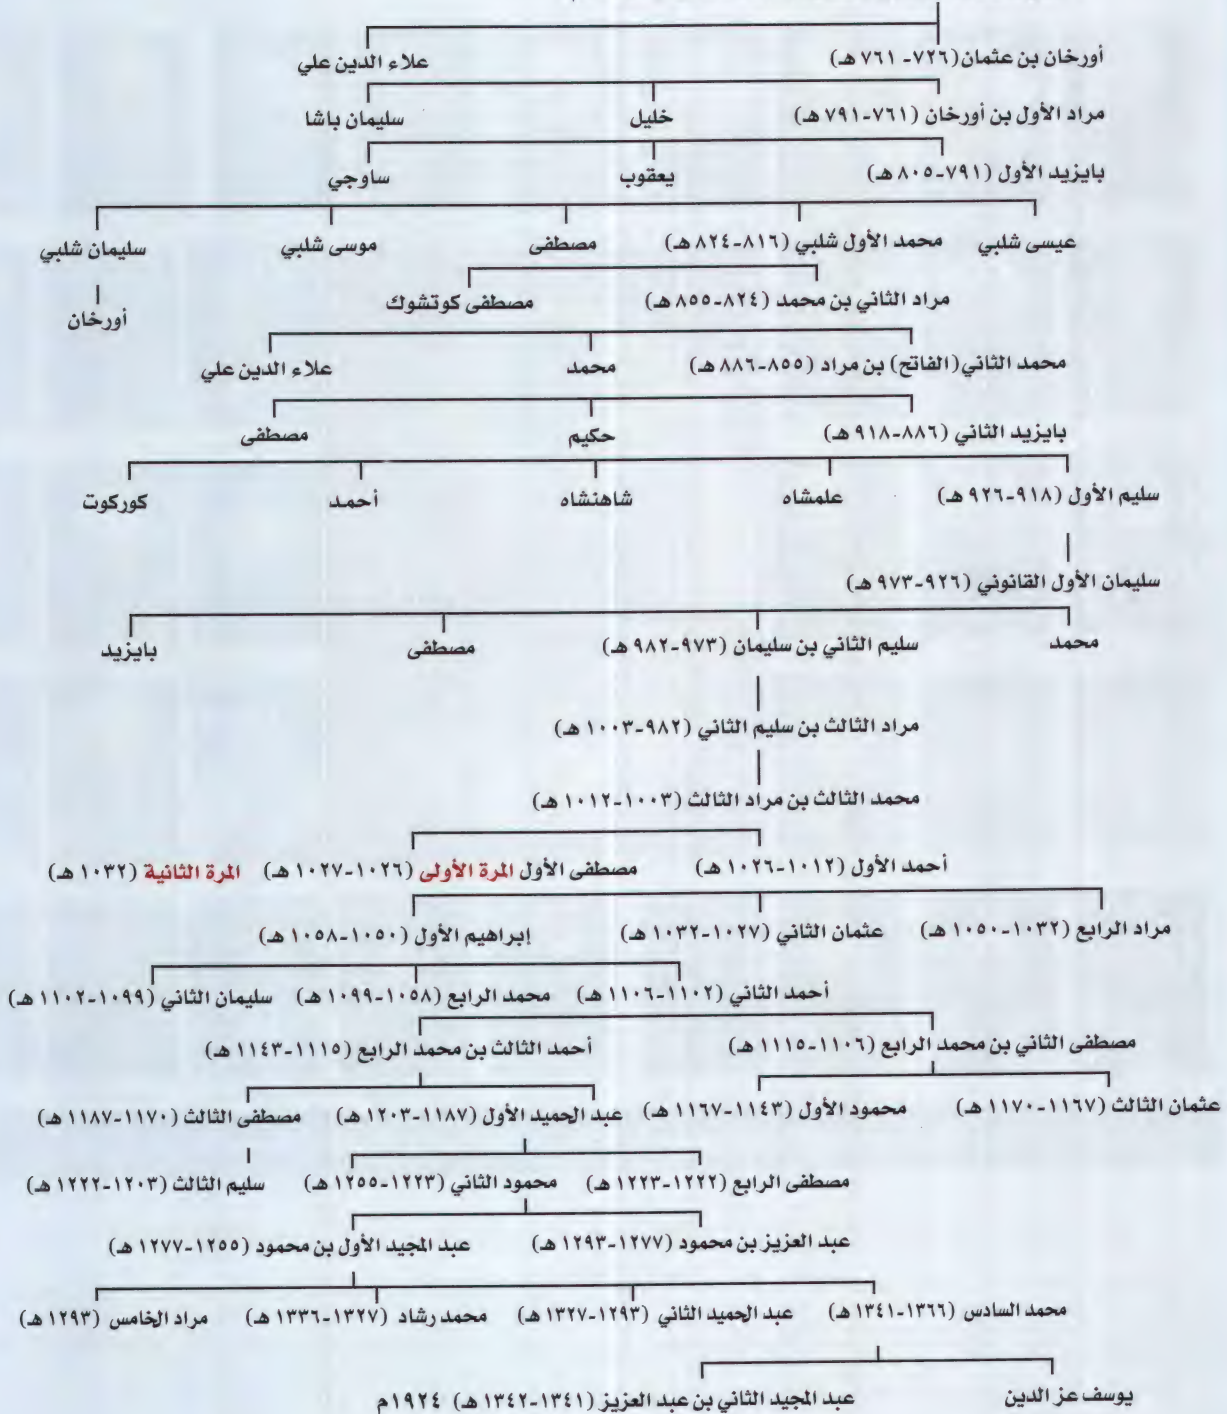 أورخان بن عثمان (٧٢٦- ٧٦١ هـ) علاء الدين علي
مراد الأول بن أورخان (٧٦١-٧٩١ هـ) خليل سليمان باشا
بايزيد الأول (٧٩١-٨٠٥ هـ) يعقوب ساوجي
عيسى شلبي محمد الأول شلبي (٨١٦-٨٢٤ هـ) مصطفى موسى شلبي سليمان شلبي
مراد الثاني بن محمد (٨٢٤-٨٥٥ هـ) مصطفى كوتشوك أورخان
محمد الثاني (الفاتح) بن مراد (٨٥٥-٨٨٦ هـ) محمد علاء الدين علي
بايزيد الثاني (٨٨٦-٩١٨ هـ) حكيم مصطفى
سليم الأول (٩١٨-٩٢٦ هـ) علمشاه شاهنشاه أحمد كوركوت
سليمان الأول القانوني (٩٢٦-٩٧٣ هـ)
محمد سليم الثاني بن سليمان (٩٧٣-٩٨٢ هـ) مصطفى بايزيد
مراد الثالث بن سليم الثاني (٩٨٢-١٠٠٣ هـ)
محمد الثالث بن مراد الثالث (١٠٠٣-١٠١٢ هـ)
أحمد الأول (١٠١٢-١٠٢٦ هـ) مصطفى الأول المرة الأولى (١٠٢٦-١٠٢٧ هـ) المرة الثانية (١٠٣٢ هـ)
مراد الرابع (١٠٣٢-١٠٥٠ هـ) عثمان الثاني (١٠٢٧-١٠٣٢ هـ) إبراهيم الأول (١٠٥٠-١٠٥٨ هـ)
أحمد الثاني (١١٠٢-١١٠٦ هـ) محمد الرابع (١٠٥٨-١٠٩٩ هـ) سليمان الثاني (١٠٩٩-١١٠٢ هـ)
مصطفى الثاني بن محمد الرابع (١١٠٦-١١١٥ هـ) أحمد الثالث بن محمد الرابع (١١١٥-١١٤٣ هـ)
عثمان الثالث (١١٦٧-١١٧٠ هـ) محمود الأول (١١٤٣-١١٦٧ هـ) عبد الحميد الأول (١١٨٧-١٢٠٣ هـ) مصطفى الثالث (١١٧٠-١١٨٧ هـ)
مصطفى الرابع (١٢٢٢-١٢٢٣ هـ) محمود الثاني (١٢٢٣-١٢٥٥ هـ) سليم الثالث (١٢٠٣-١٢٢٢ هـ)
عبد العزيز بن محمود (١٢٧٧-١٢٩٣ هـ) عبد المجيد الأول بن محمود (١٢٥٥-١٢٧٧ هـ)
محمد السادس (١٣٦٦-١٣٤١ هـ) عبد الحميد الثاني (١٢٩٣-١٣٢٧ هـ) محمد رشاد (١٣٢٧-١٣٣٦ هـ) مراد الخامس (١٢٩٣ هـ)
يوسف عز الدين عبد المجيد الثاني بن عبد العزيز (١٣٤١-١٣٤٢ هـ) ١٩٢٤م